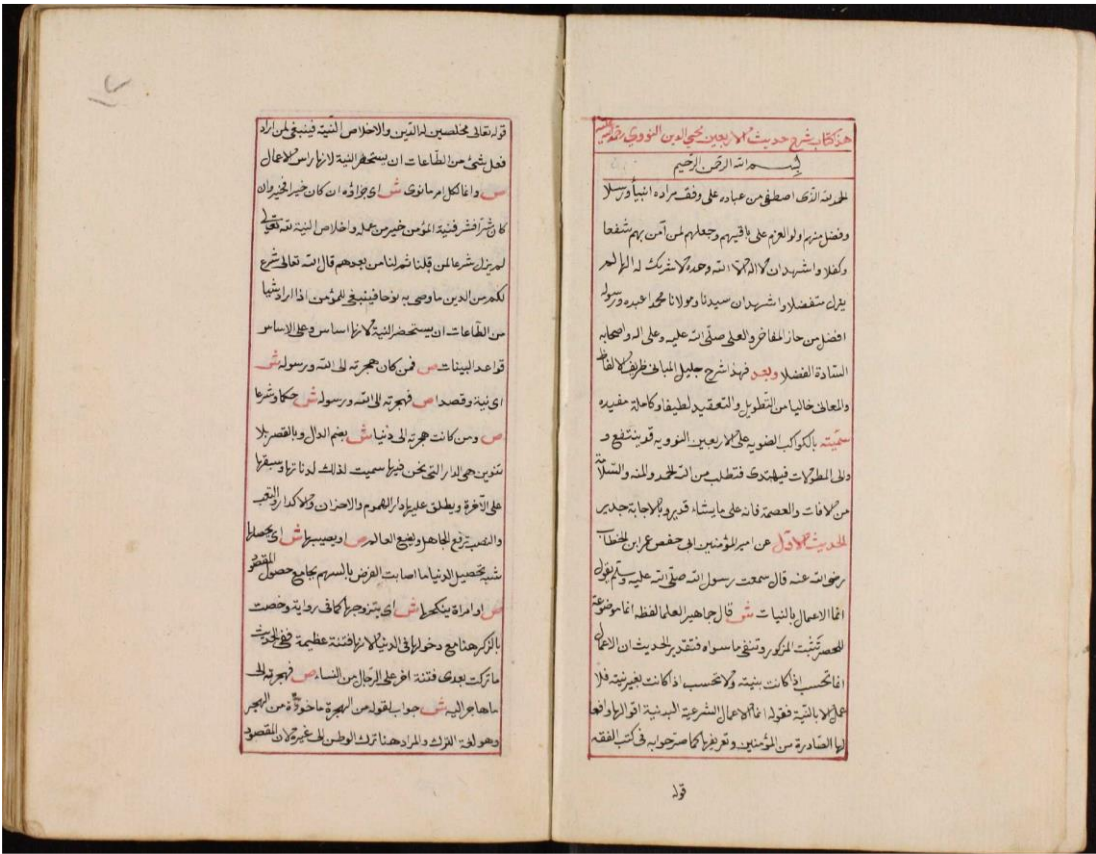 هذا كتاب شرح حديث الاربعين محيي الدين النووي رحمه الله
بسم الله الرحمن الرحيم
الحمد لله الذى اصطفى من عباده على وفق مراده انبيأ ورسلا
وفضل منهم اولو العزم على باقيهم وجعلهم لمن آمن بهم شفعا
وكفلا واشهد ان لا اله الا الله وحده لا شريك له الها لم
يزل متفضلا واشهد ان سيدنا ومولانا محمدا عبده ورسوله
افضل من حاز المفاخر والعلى صلّى الله عليه وعلى اله واصحابه
السّادة الفضلا وبعد فهذا شرح جليل المبانى ظريف الالفاظ
والمعانى خاليا من التّطويل والتّعقيد لطيفا وكاملة مفيده
سمّيته بالكواكب الضويه على الاربعين النوويه قد ينتفع و
والى المطولات فيهتدى فتطلب من الله الحمد والمنه والسّلامة
من الافات والعصمة فانه على ما يشاء قدير وبالاجابة جدير
الحديث الاول عن امير المؤمنين ابى حفص عمر ابن الخطاب
رضى الله عنه قال سمعت رسول الله صلّى الله عليه وسلّم يقول
انما الاعمال بالنيات ش قال جماهير العلما لفظه انما موضوعة
للحصر تثبت المذكور وتنفى ما سواه فتقدير الحديث ان الاعمال
انما تحسب اذا كانت بنيته ولا تحسب اذا كانت بغير نيته فلا
عمل الا بالنّية فقوله انما الاعمال الشرعية البدنية اقوالها وافعا
لها الصّادرة من المؤمنين وتعريفها كما صرّحوا به فى كتب الفقه
قوله
قوله تعالى مخلصين له الدّين والاخلاص النّية فينبغى لمن اراد
فعل شئ من الطّاعات ان يستحضر النية لانها راس الاعمال
ص وانما لكل امر ما نوى ش اى جزاؤه ان كان خيرا فخير وان
كان شرّا فشر فنية المؤمن خير من عمله واخلاص النية لله تعالى
لم يزل شرعا لمن قبلنا ثم لنا من بعدهم قال الله تعالى شرع
لكم من الدين ما وصى به نوحا فينبغى للمؤمن اذا اراد شيا
من الطّاعات ان يستحضر النية لانها اساس وعلى الاساس
قواعد البينات ص فمن كان هجرته الى الله ورسوله ش
اى نية وقصدا ص فهجرته الى الله ورسوله ش حكما وشرعا
ص ومن كانت هجرته الى دنيا ش بضم الدال وبالقصر بلا
تنوين هى الدار التى نحن فيها سميت لذلك لدناتها وسبقها
على الآخرة ويطلق عليها دار الهموم والاحزان والاكدار والتعب
والنصب ترفع الجاهل وتضع العالم ص او يصيبها ش اى يحصلها
شبه تحصيل الدنيا ما اصابت الغرض بالسهم بجامع حصول المقصود
ص او امراة ينكحها ش اى يتزوجها كما فى رواية وخصت
بالذكر هنا مع دخولها فى الدنيا لانها فتنة عظيمة ففى الحديث
ما تركت بعدى فتنة اضر على الرّجال من النساء ص فهجرته الى
ما هاجر اليه ش جواب لقوله من الهجرة ماخوذة من الهجر
وهو لغة الترك والمراد هنا ترك الوطن الى غيره لان المقصود